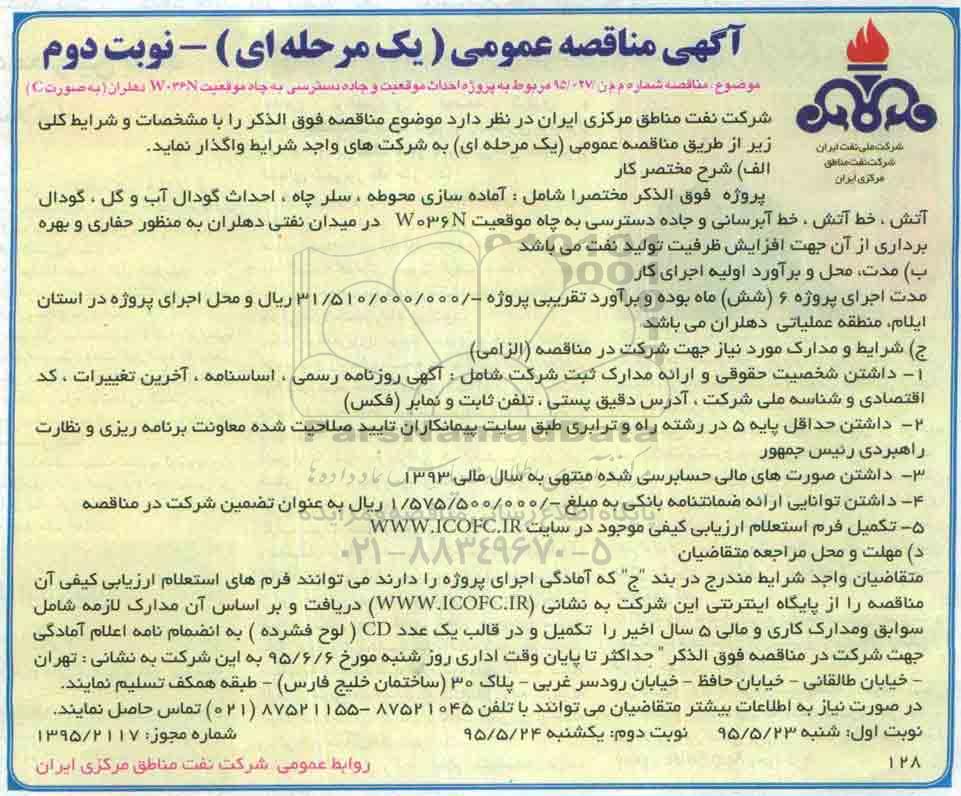 آگهی مناقصه عمومی ( یک مرحله ای ) – نوبت دوم
موضوع: مناقصه شماره م م ن /۹۵/۰۲۷ مربوط به پروژه احداث موقعیت و جاده دسترسی به چاه موقعیت W۰۳۶N دهلران (به صورت C)
شرکت ملی نفت ایران
شرکت نفت مناطق
مرکزی ایران
شرکت نفت مناطق مرکزی ایران در نظر دارد موضوع مناقصه فوق الذکر را با مشخصات و شرایط کلی
زیر از طریق مناقصه عمومی (یک مرحله ای) به شرکت های واجد شرایط واگذار نماید.
الف) شرح مختصر کار
پروژه فوق الذکر مختصرا شامل : آماده سازی محوطه ، سلر چاه ، احداث گودال آب و گل ، گودال
آتش ، خط آتش ، خط آبرسانی و جاده دسترسی به چاه موقعیت W۰۳۶N در میدان نفتی دهلران به منظور حفاری و بهره
برداری از آن جهت افزایش ظرفیت تولید نفت می باشد
ب) مدت، محل و برآورد اولیه اجرای کار
مدت اجرای پروژه ۶ (شش) ماه بوده و برآورد تقریبی پروژه –/۳۱/۵۱۰/۰۰۰/۰۰۰ ریال و محل اجرای پروژه در استان
ایلام، منطقه عملیاتی دهلران می باشد
ج) شرایط و مدارک مورد نیاز جهت شرکت در مناقصه (الزامی)
۱- داشتن شخصیت حقوقی و ارائه مدارک ثبت شرکت شامل : آگهی روزنامه رسمی ، اساسنامه ، آخرین تغییرات ، کد
اقتصادی و شناسه ملی شرکت ، آدرس دقیق پستی ، تلفن ثابت و نمابر (فکس)
۲- داشتن حداقل پایه ۵ در رشته راه و ترابری طبق سایت پیمانکاران تایید صلاحیت شده معاونت برنامه ریزی و نظارت
راهبردی رئیس جمهور
۳- داشتن صورت های مالی حسابرسی شده منتهی به سال مالی ۱۳۹۳
۴- داشتن توانایی ارائه ضمانتنامه بانکی به مبلغ –/۱/۵۷۵/۵۰۰/۰۰۰ ریال به عنوان تضمین شرکت در مناقصه
۵- تکمیل فرم استعلام ارزیابی کیفی موجود در سایت WWW.ICOFC.IR
۰۲۱-۸۸۳۴۹۶۷۰-۵
د) مهلت و محل مراجعه متقاضیان
متقاضیان واجد شرایط مندرج در بند "ج" که آمادگی اجرای پروژه را دارند می توانند فرم های استعلام ارزیابی کیفی آن
مناقصه را از پایگاه اینترنتی این شرکت به نشانی (WWW.ICOFC.IR) دریافت و بر اساس آن مدارک لازمه شامل
سوابق ومدارک کاری و مالی ۵ سال اخیر را تکمیل و در قالب یک عدد CD ( لوح فشرده ) به انضمام نامه اعلام آمادگی
جهت شرکت در مناقصه فوق الذکر " حداکثر تا پایان وقت اداری روز شنبه مورخ ۹۵/۶/۶ به این شرکت به نشانی : تهران
– خیابان طالقانی – خیابان حافظ – خیابان رودسر غربی – پلاک ۳۰ (ساختمان خلیج فارس) – طبقه همکف تسلیم نمایند.
در صورت نیاز به اطلاعات بیشتر متقاضیان می توانند با تلفن ۸۷۵۲۱۰۴۵ –۸۷۵۲۱۱۵۵ (۰۲۱) تماس حاصل نمایند.
نوبت اول: شنبه ۹۵/۵/۲۳ نوبت دوم: یکشنبه ۹۵/۵/۲۴ شماره مجوز: ۱۳۹۵/۲۱۱۷
۱۲۸ روابط عمومی شرکت نفت مناطق مرکزی ایران